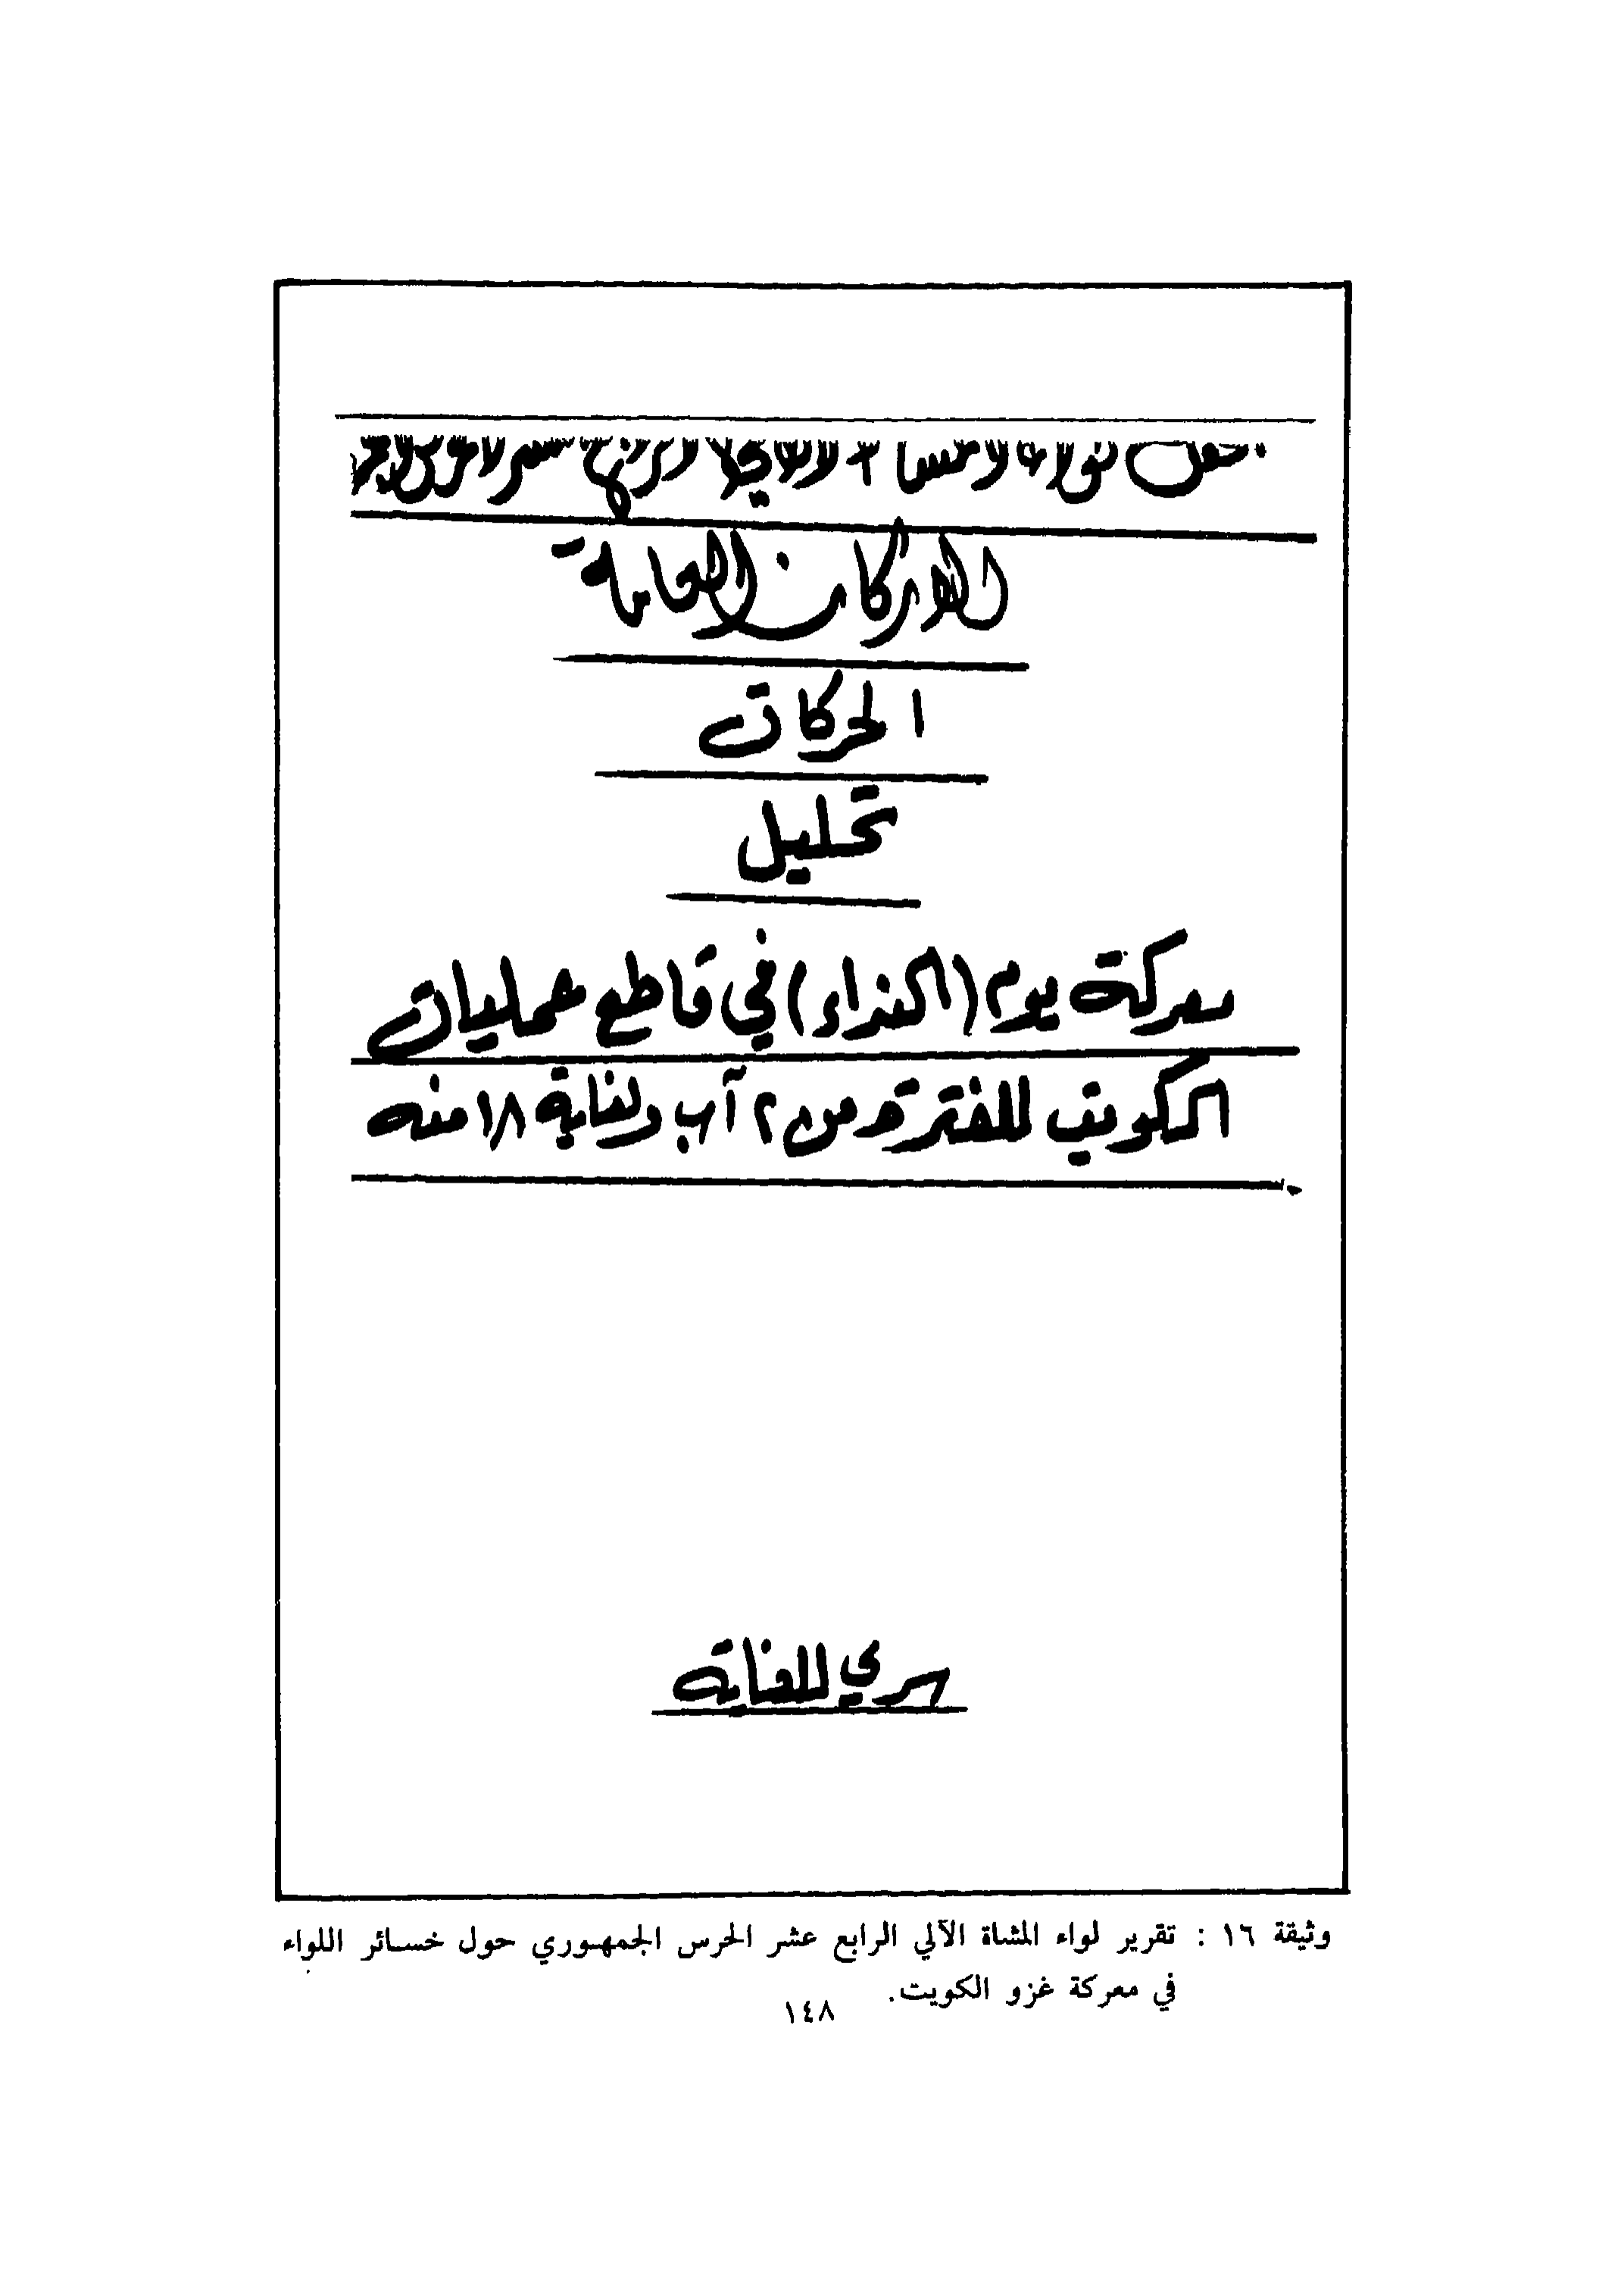 الاركان العامة
الحركات
تحليل
معركة يوم (النداء) في قاطع عمليات
الكويت للفترة من ٢ آب ولغاية ١٨ منه
سري للغاية
وثيقة ١٦ : تقرير لواء المشاة الآلي الرابع عشر الحرس الجمهوري حول خسائر اللواء
في معركة غزو الكويت.
١٤٨